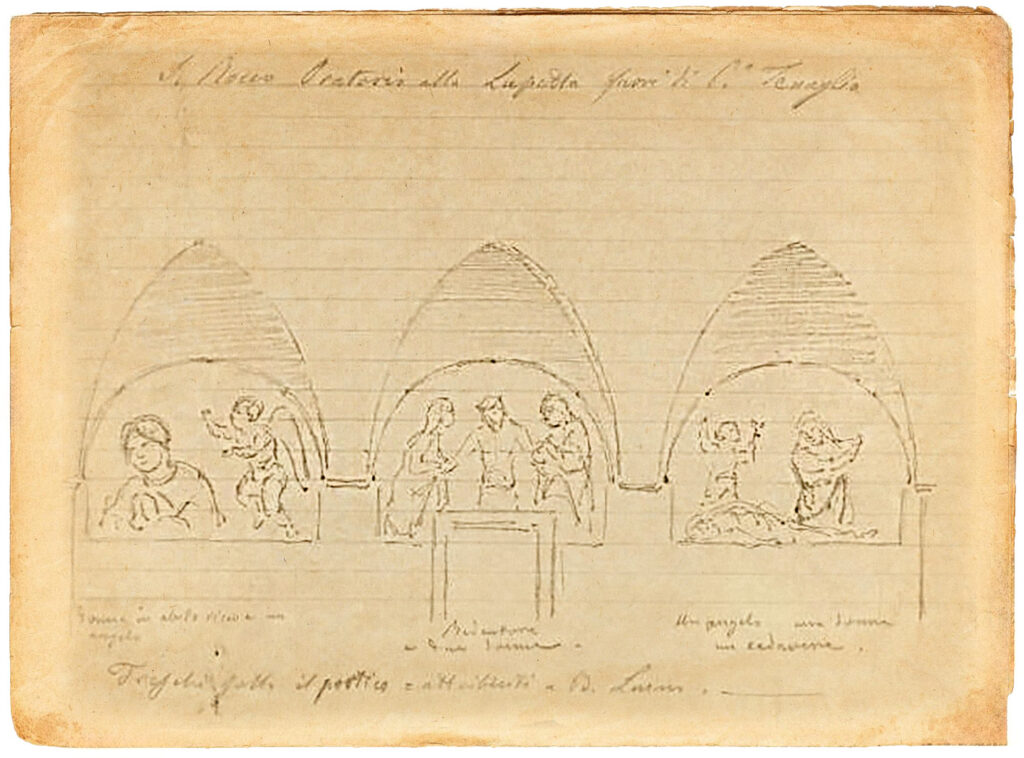 S. Rocco Oratorio alla Lupetta fuori di P.ª Tenaglia
Donna in un
angelo
Redentore
e due donne.
Un angelo una donna
un cadavere.
Freschi sotto il portico = attribuiti a B. Luini.